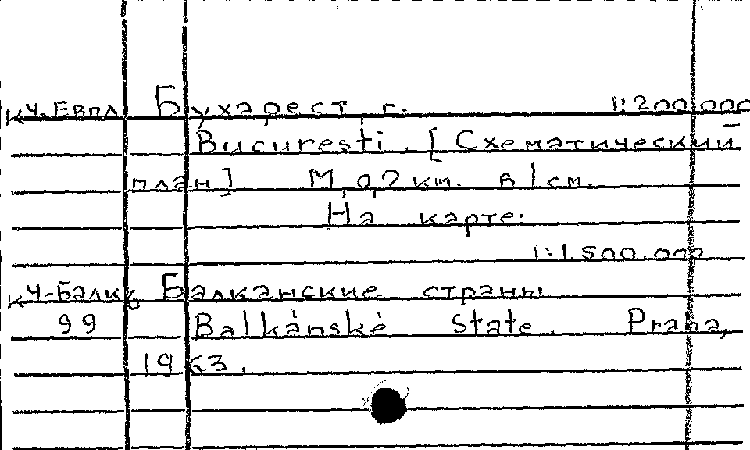 КЧ-Евпл Бухарест, г. 1:200 000
Bucureşti. [Схематический
план] М 0,2 км. в 1 см.
На карте:
1:1.500.000
КЧ-Балк Балканские страны
99 Balkánské State. Praha,
1963.